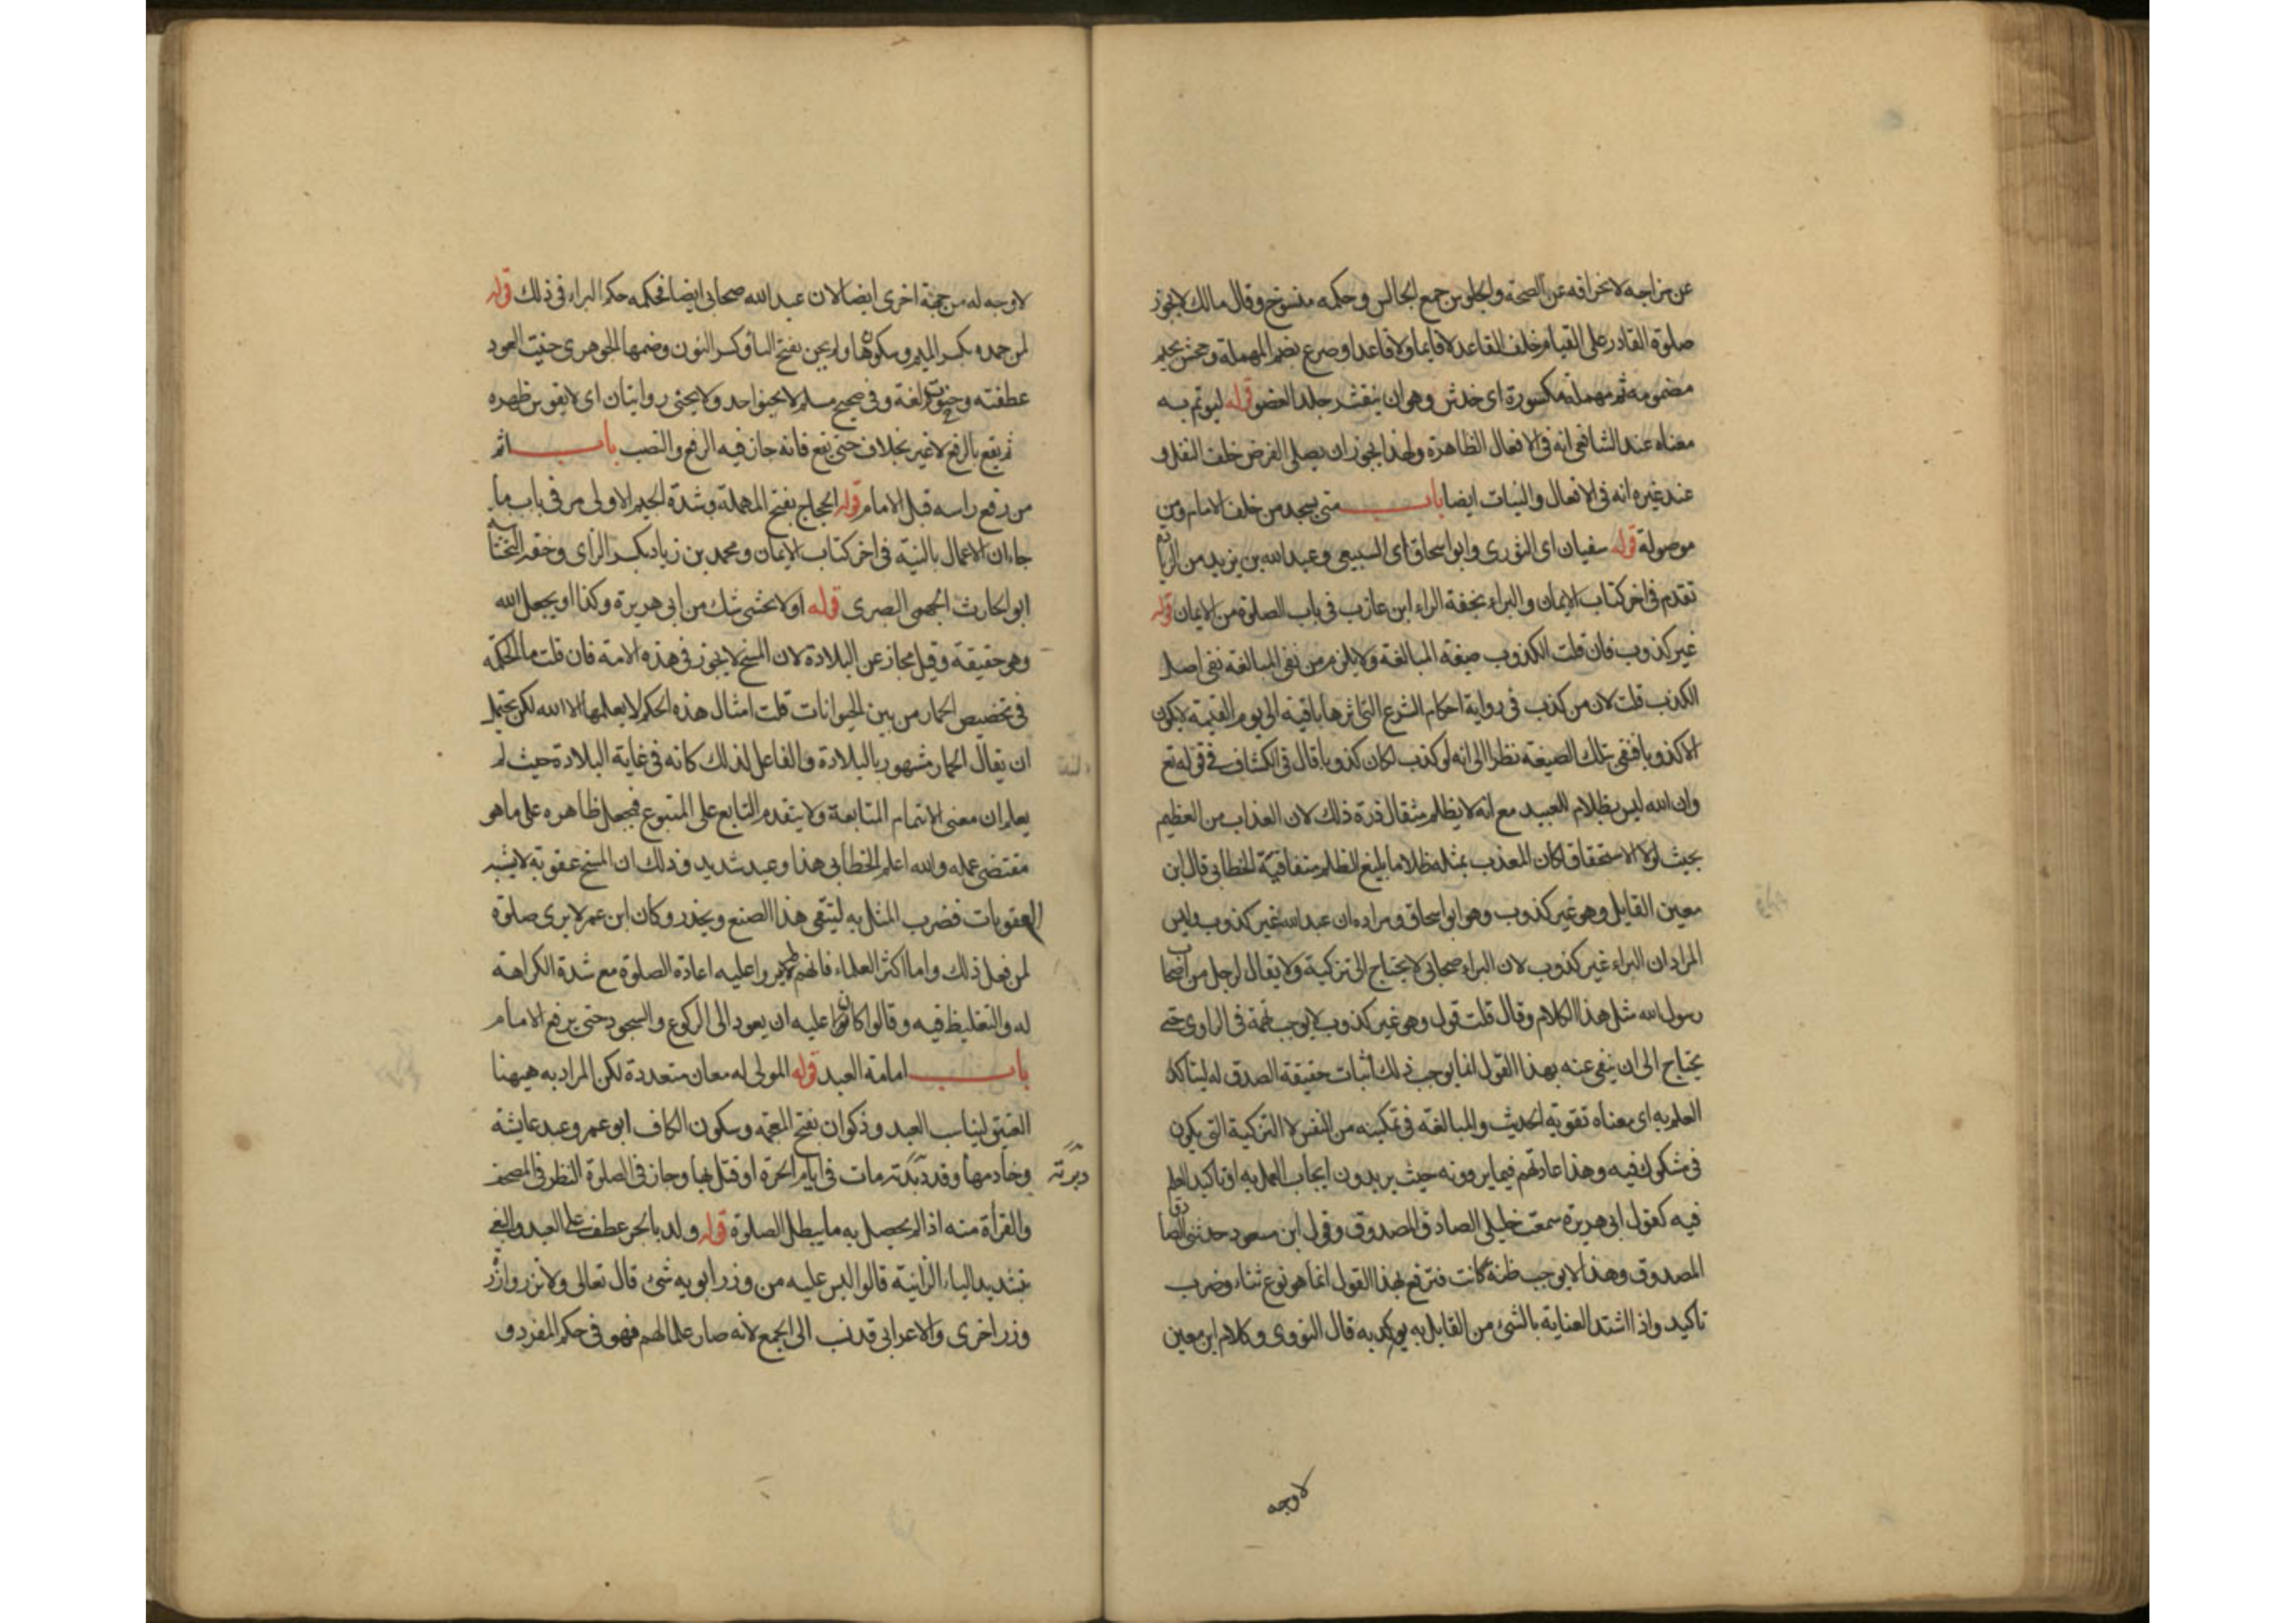 عن مزاجه لانحرافه عن الصحة والجلوس جمع الجالس وحكمه منسوخ وقال مالك لا يجوز
صلوة القادر على القيام خلف القاعد لا قايما ولا قاعدا وصرع بضم المهملة وجحش بجيم
مضمومه ثم مهملة مكسورة اى خدش وهو ان ينقشر جلد العضو قوله ليوتم به
معناه عند الشافعى انه فى الافعال الظاهرة ولهذا يجوز ان يصلى الفرض خلف النفل و
عند غيره انه فى الافعال والنيات ايضا باب متى يسجد من خلف الامام ومن
موصولة قوله سفيان اى الثورى وابو اسحاق اى السبيعى وعبد الله بن يزيد من الزيادة
تقدم فى اخر كتاب الايمان والبراء بخفة الراء ابن عازب فى باب الصلوة من الايمان قوله
غير كذوب فان قلت الكذوب صيغة المبالغة ولا يلزم من نفى المبالغة نفى اصل
الكذب قلت لان من كذب فى رواية احكام الشرع التى اثرها باقية الى يوم القيمة لا يكون
الا كذوبا فنفى تلك الصيغة نظرا الى انه لو كذب لكان كذوبا قال فى الكشاف فى قوله تع
وان الله ليس بظلام للعبيد مع انه لا يظلم مثقال ذرة ذلك لان العذاب من العظيم
بحيث لولا الاستحقاق لكان المعذب بمثله ظلاما بليغ الظلم متفاقمه الخطابى قال ابن
معين القايل وهو غير كذوب وهو ابو اسحاق ومراده ان عبد الله غير كذوب وليس
المراد ان البراء غير كذوب لان البراء صحابى لا يحتاج الى تزكية ولا يقال لرجل من اصحاب
رسول الله مثل هذا الكلام وقال قلت قول وهو غير كذوب لا يوجب تهمة فى الراوى حتى
يحتاج الى ان ينفى عنه بهذا القول انما يوجب ذلك اثبات حقيقة الصدق له ليتاكد
العلم به اى معناه تقوية الحديث والمبالغة فى تمكينه من النفس لا التزكية التى يكون
فى مشكوك فيه وهذا عادتهم فيما يروونه حيث يريدون ايجاب العمل به او تاكيد العلم
فيه كقول ابى هريرة سمعت خليلى الصادق المصدوق وقول ابن مسعود حدثنى الصادق
المصدوق وهذا لا يوجب ظنة كانت فترفع بهذا القول انما هو نوع ثناء وضرب
تاكيد واذا اشتد العناية بالشئ من القايل به يوكد به قال النووى وكلام ابن معين
لا وجه
لا وجه له من جهة اخرى ايضا لان عبد الله صحابى ايضا فحكمه حكم البراء فى ذلك قوله
لمن حمده بكسر الميم وسكونها ولم يحن بفتح اليا وكسر النون وضمها الجوهرى حنيت العود
عطفته وحنوت لغة وفى صحيح مسلم لا يحنو احد ولا يحنى روايتان اى لا يقوس ظهره
ثم يقع بالرفع لا غير بخلاف حتى يقع فانه جاز فيه الرفع والنصب باب اثم
من رفع راسه قبل الامام قوله الحجاج بفتح المهملة وشدة الجيم الاولى مر فى باب ما
جاء ان الاعمال بالنية فى اخر كتاب الايمان ومحمد بن زياد بكسر الزاى وخفة التحتانية
ابو الحارث الجمحى البصرى قوله اولا يخشى شك من ابى هريرة وكذا او يجعل الله
وهو حقيقة وقيل مجاز عن البلادة لان المسخ لا يجوز فى هذه الامة فان قلت ما الحكمة
فى تخصيص الحمار من بين الحيوانات قلت امثال هذه الحكم لا يعلمها الا الله لكن يحتمل
ان يقال الحمار مشهور بالبلادة والفاعل لذلك كانه فى غاية البلادة حيث لم
يعلم ان معنى الايتمام المتابعة ولا يتقدم التابع على المتبوع فجعل ظاهره على ما هو
مقتضى عمله والله اعلم الخطابى هذا وعيد شديد وذلك ان المسخ عقوبة لا يشبه
العقوبات فضرب المثل به ليتقى هذا الصنع ويحذر وكان ابن عمر لا يرى صلوة
لمن فعل ذلك واما اكثر العلماء فانهم لم يروا عليه اعادة الصلوة مع شدة الكراهة
له والتغليظ فيه وقالوا كان عليه ان يعود الى الركوع والسجود حتى يرفع الامام
باب امامة العبد قوله المولى له معان متعددة لكن المراد به هيهنا
العتيق ليناسب العبد وذكوان بفتح المعجمة وسكون الكاف ابو عمرو عبد عايشة
وخادمها وقد دبرته مات فى ايام الحرة او قتل بها وجاز فى الصلوة النظر فى المصحف
دبرته
والقرأة منه اذا لم يحصل به ما يبطل الصلوة قوله ولد بالجر عطف على العبد والبغى
بتشديد الياء الزانية قالوا ليس عليه من وزر ابويه شئ قال تعالى ولا تزر وازرة
وزر اخرى والاعرابى قد نسب الى الجمع لانه صار علما لهم فهو فى حكم المفرد و